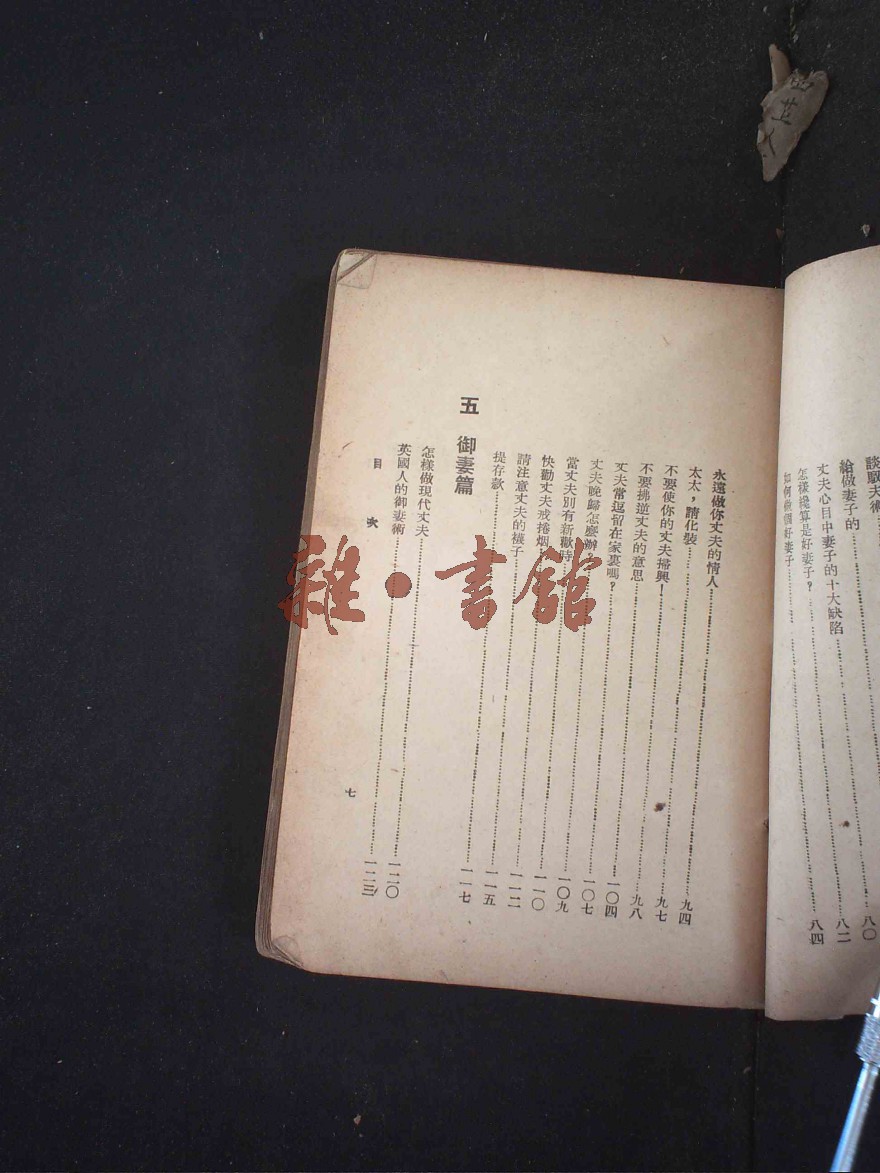 談馭夫術
給做妻子的……八〇
丈夫心目中妻子的十大缺陷……八二
怎樣纔算是好妻子？……八四
如何做個好妻子……
永遠做你丈夫的情人……九四
太太，請化裝……九七
不要使你的丈夫掃興！……九八
不要拂逆丈夫的意思……一〇四
丈夫常逗留在家裏嗎？……一〇七
丈夫晚歸怎麼辦？……一〇九
當丈夫別有新歡時……一一〇
快勸丈夫戒捲烟……一一二
請注意丈夫的襪子……一一五
提存款……一一七
五 御妻篇
怎樣做現代丈夫……一二〇
英國人的御妻術……一二三
目次
七
雜·書館